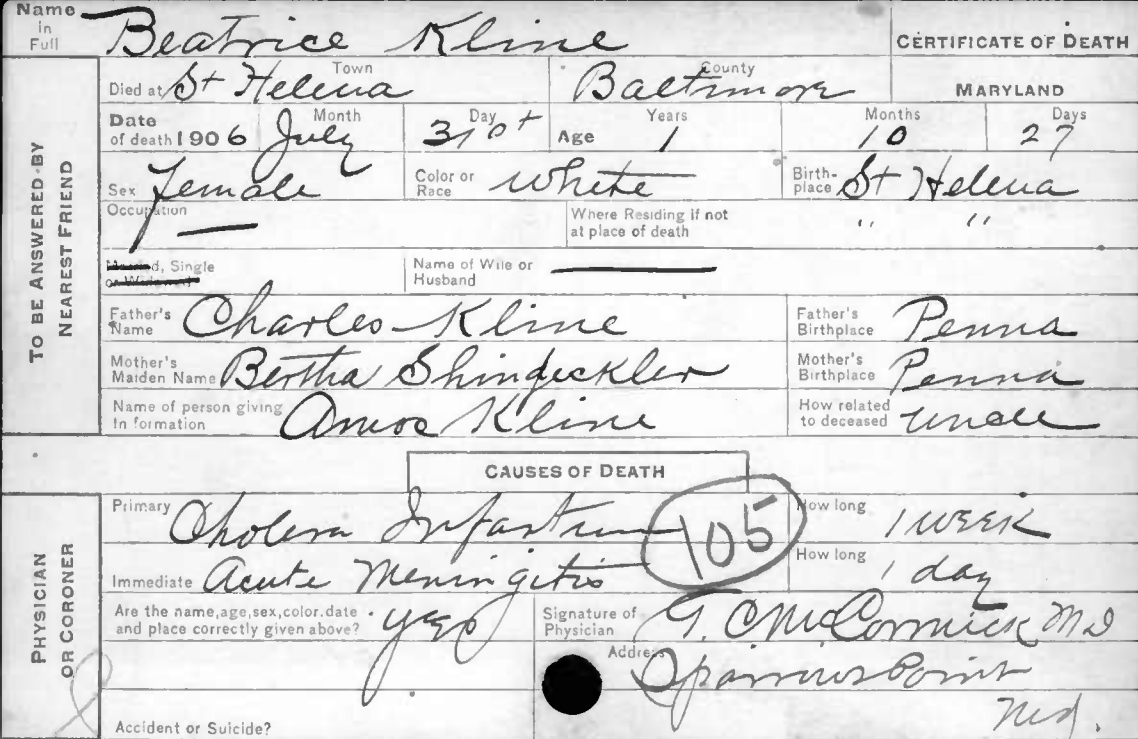 Name in Full Beatrice Kline CERTIFICATE OF DEATH
TO BE ANSWERED BY NEAREST FRIEND
Died at St Helena Town Baltimore County MARYLAND
Date of death 1906 July Month 31st Day Age 1 Years 10 Months 27 Days
Sex Female Color or Race White Birth-place St Helena
Occupation — Where Residing if not at place of death " "
Married, Single or Widowed Name of Wife or Husband —
Father's Name Charles Kline Father's Birthplace Penna
Mother's Maiden Name Bertha Shindeckler Mother's Birthplace Penna
Name of person giving Information Amos Kline How related to deceased Uncle
CAUSES OF DEATH
PHYSICIAN OR CORONER
Primary Cholera Infantum 105 How long 1 WEEK
Immediate Acute Meningitis How long 1 day
Are the name,age,sex,color,date and place correctly given above? yes Signature of Physician T. C McCormick MD
Address Sparrows Point
Md.
Accident or Suicide?